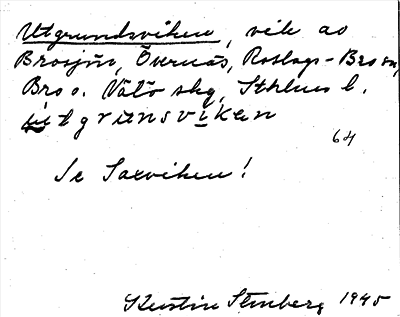 Utgrundsviken, vik av
Brosjön, Övernäs, Roslags-Bro sn,
Bro o. Vätö skg, Sthlms l.
ùtgrunsvikan
64
Se Saxviken!
Kerstin Stenberg 1945